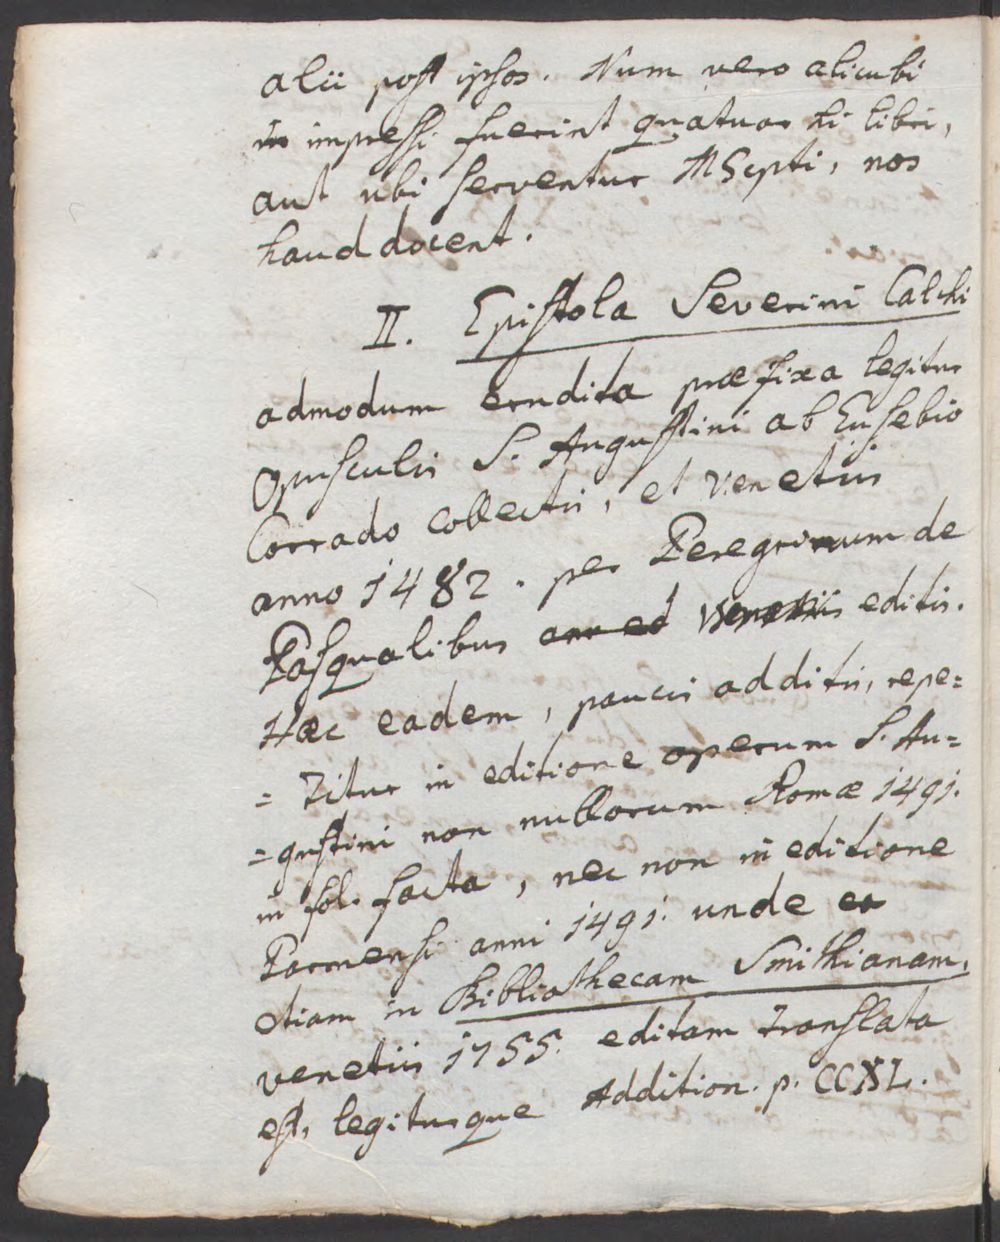 alii post ipsos. Num vero alicubi
impressi fuerint quatuor hi libri,
aut ubi serventur MScpti, nos
haud docent.
II. Epistola Severini Calchi
admodum erudita præfixa legitur
Opusculis S. Augustini ab Eusebio
Corrado collectis, et Venetiis
anno 1482. per Peregrinum de
Pasqualibus editis.
Hæc eadem, paucis additis, repe=
=titur in editione operum S. Au=
=gustini non nullorum Romæ 1491.
in fol. facta, nec non in editione
Parmensi anni 1491. unde
etiam in Bibliothecam Smithianam,
venetiis 1755. editam translata
est, legiturque Addition. p. CCXL.